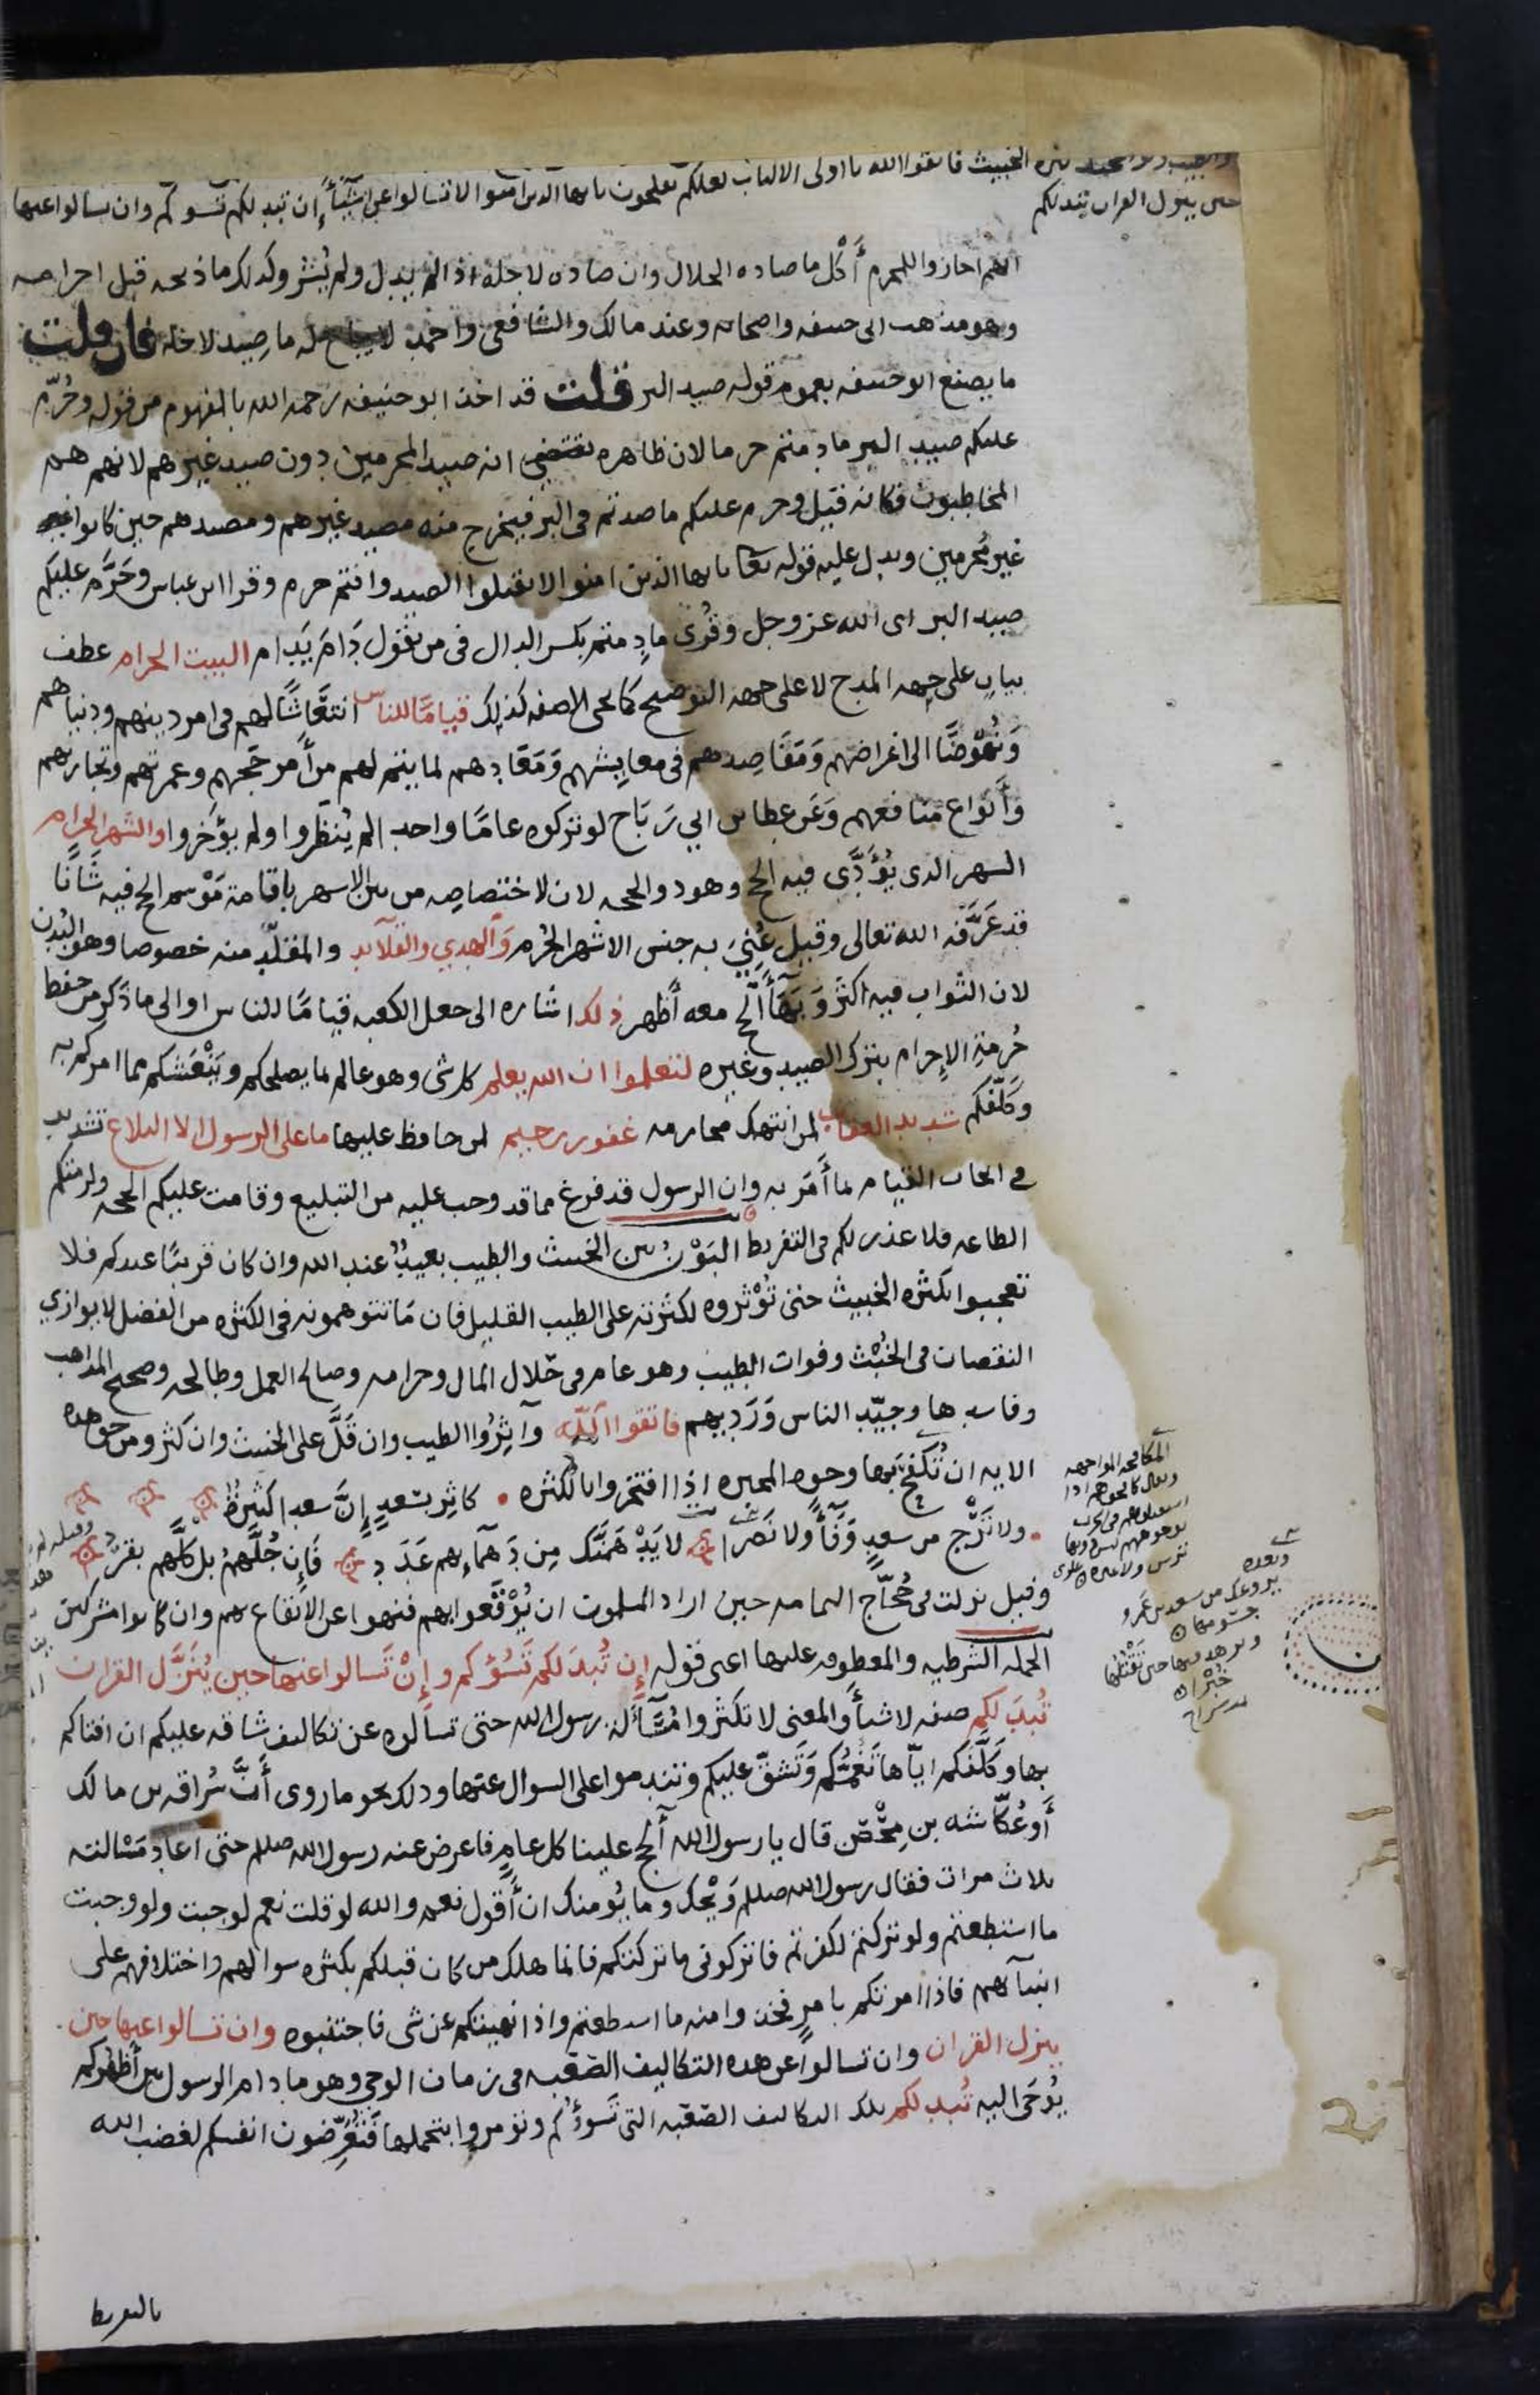 الخبيث فاتقوا الله يا اولى الالباب لعلكم تفلحون يا يها الذين امنوا لا تسالوا عن اشيآء إن تبد لكم تسوكم وان تسالوا عنها
حين ينزل القران تبد لكم
انهم اجازوا للمحرم أكل ما صاده الحلال وان صاده لاجله اذا لم يدل ولم يُشر وكذلك ما ذبحه قبل احرامه
وهو مذهب ابى حنيفه واصحابه وعند مالك والشافعى واحمد لا يباح له ما صيد لاجله فان قلت
ما يصنع ابو حنيفه بعموم قوله صيد البر قلت قد اخذ ابو حنيفه رحمه الله بالمفهوم من قوله وحُرّم
عليكم صيد البر ما دمتم حرما لان ظاهره يقتضى انه صيد المحرمين دون صيد غيرهم لانهم هم
المخاطبون فكانه قيل وحرم عليكم ما صدتم فى البر فيخرج منه مصيد غيرهم ومصيدهم حين كانوا
غير مُحرمين ويدل عليه قوله تعا يا يها الذين امنوا لا تقتلوا الصيد وانتم حرم وقرا ابن عباس وحَرَّم عليكم
صيد البر اى الله عز وجل وقُرى ما دِمتم بكسر الدال فى من يقول دَامَ يَدام البيت الحرام عطف
بيان على جهه المدح لا على جهه التوضيح كما تجى الصفه كذلك قيامًا للناس انتعَاشًا لهم فى امر دينهم ودنياهم
وَنُهُوضًا الى اغراضهم وَمَقَاصِدهم فى معايِشهم وَمَعَادِهم لما يتم لهم من أمر حَجهم وعمرتهم وتجارتهم
وأنواع منافعهم وَعَن عطا بن ابي رَبَاح لو تركوه عامًا واحدا لم يُنظَروا ولم يؤخروا والشهر الحرام
الشهر الذى يُؤَدَّى فيه الحج وهو ذو الحجه لان لاختصاصه من بين الاشهر باقامة مَوْسم الحج فيه شَانًا
قد عَرَّفه الله تعالى وقيل عُنِيَ به جنس الاشهر الحُرم وَالهدي والقلآيد والمقلّد منه خصوصا وهو البُدن
لان الثواب فيه اكثر وَبَهَآءُ الحج معه أظهر ذلك اشاره الى جعل الكعبه قيامًا للناس او الى ما ذُكر من حفظ
حُرمةِ الاِحرام بترك الصيد وغيره لتعلموا ان الله يعلم كل شى وهو عالم لما يصلحكم ويَنْعَشكم مما امركم به
وكلّفكم شديد العقاب لمن انتهك محارمه غفور رحيم لمن حافظ عليها ما على الرسول الا البلاغ تشديد
فى ايجاب القيام بما أَمَر به وان الرسول قد فرغ مما قد وجب عليه من التبليغ وقامت عليكم الحجه ولزمتكم
الطاعه فلا عذر لكم فى التفريط البَوْنُ بين الخبيث والطيب بعيدٌ عند الله وان كان قريبًا عندكم فلا
تعجبوا بكثره الخبيث حتى تُؤْثروه لكثرته على الطيب القليل فان مَا تتوهمونه فى الكثره من الفضل لا يوازي
النقصان فى الخُبْث وفوات الطيب وهو عام فى حَلال المال وحرامه وصالح العمل وطالحه وصحيح المذاهب
وفاسدها وجيّد الناس وَرَديهم فاتقوا اللّه وآثِرُوا الطيب وان قَلَّ على الخبيث وان كثر ومن حق هذه
الايه ان تُكفح بَها وجوه المجبره اذا افتخروا بالكثره كاثِر بسَعدٍ إنَّ سعدا كثيرةٌ
ولا تَرْجُ من سعدٍ وَفَآءً ولا نَصْرا لا يَدْهَمَنَّك مِن دَهمآءِهم عَدَد فَإن جُلَّهُمُ بل كلَّهم بقر
وقيل نزلت فى حُجّاج اليمامه حين اراد المسلمون ان يُوْقعوا بهم فنهوا عن الايقاع بهم وان كانوا مشركين
الجمله الشرطيه والمعطوفه عليها اعنى قوله إن تُبدَ لكم تَسُؤكم وإنْ تَسالوا عنها حين يُنَزَّل القران
تُبدَ لكم صفه لاشيآء والمعنى لا تكثروا مَسْأَلة رسول الله حتى تسالوه عن تكاليف شاقه عليكم ان افتاكم
بها وكلّفكم ايّاها تَغُمَّكم وَتَشقّ عليكم وتندموا على السوال عنها وذلك نحو ما روى أنَّ سُراقه بن مالك
أوعُكّاشه بن مِحْصَن قال يا رسول الله أَلحج علينا كل عامٍ فاعرض عنه رسول الله صللم حتى اعاد مَسْالته
ثلاث مرات فقال رسول الله صللم وَيْحك وما يُومنك ان أقول نعم والله لو قلت نعم لوجبت ولو وجبت
ما استطعتم ولو تركتم لكفرتم فاتركونى ما تركتكم فانما هلك من كان قبلكم بكثره سوالهم واختلافهم على
انبيآهم فاذا امرتكم بامرٍ فخذوا منه ما استطعتم واذا نهيتكم عن شى فاجتنبوه وان تسالوا عنها حين
ينزل القران وان تسالوا عن هذه التكاليف الصّعبه فى زمان الوحى وهو ما دام الرسول بين أظهركم
يُوحَى اليه تُبد لكم تلك التكاليف الصّعبه التى تَسوؤكم وتؤمروا بتحملها فَتُعَرِّضون انفسكم لغضب الله
المكافحه المواجهه
وبعده
بالتفريط